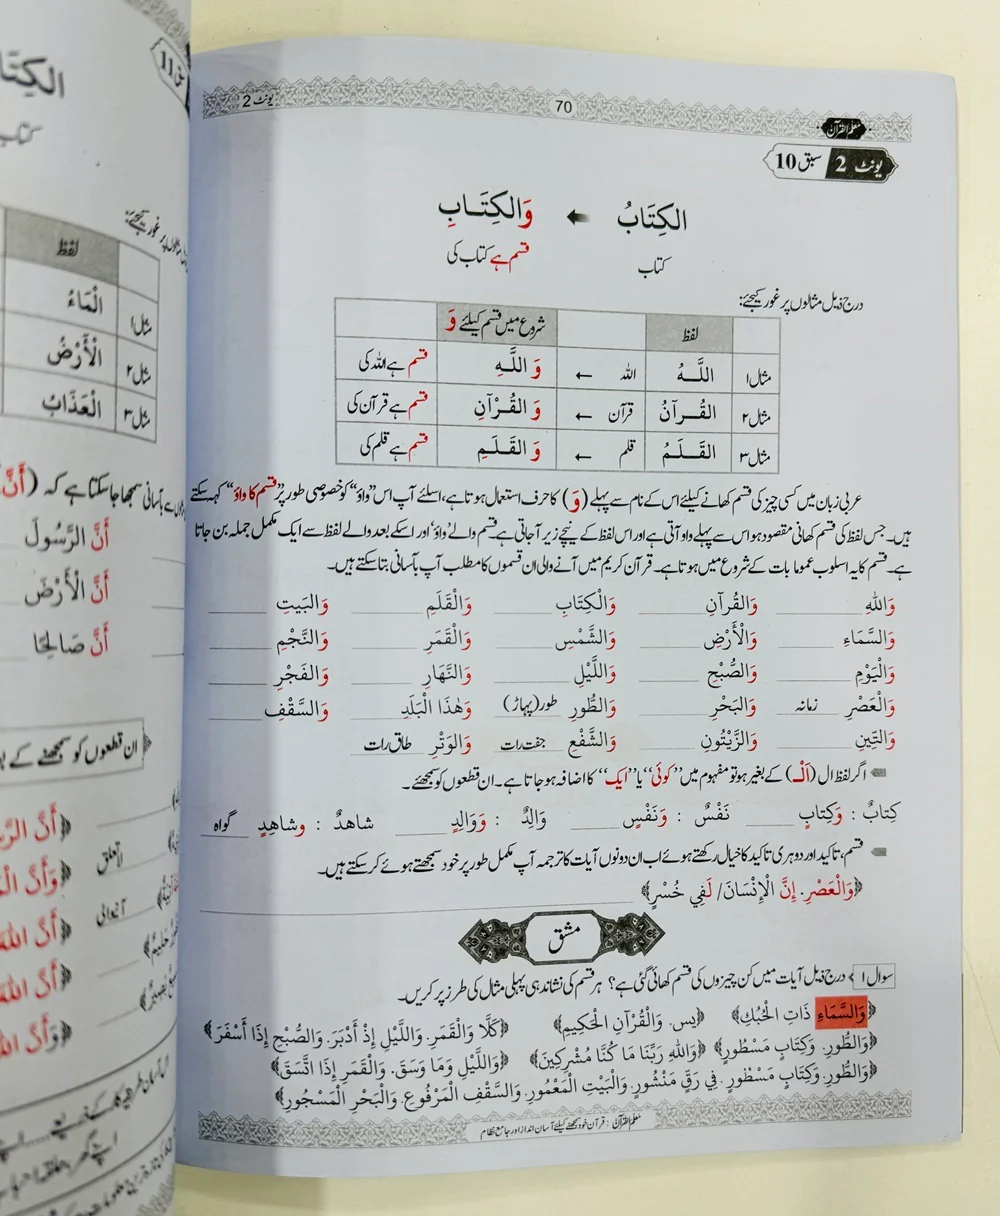 معلم القرآن
70
یونٹ 2
یونٹ 2 سبق 10
الكِتَابُ ← وَالكِتَـابِ
کتاب قسم ہے کتاب کی
درج ذیل مثالوں پر غور کیجئے:
لفظ شروع میں قسم کیلئے وَ
مثال۱ اللَّـهُ اللہ ← وَ اللَّـهِ قسم ہے اللہ کی
مثال۲ القُـرآنُ قرآن ← وَ القُـرْآنِ قسم ہے قرآن کی
مثال۳ القَـلَـمُ قلم ← وَ القَـلَـمِ قسم ہے قلم کی
عربی زبان میں کسی چیز کی قسم کھانے کیلئے اس کے نام سے پہلے (وَ) کا حرف استعمال ہوتا ہے، اسلئے آپ اس ”واؤ“ کو خصوصی طور پر ”قسم کا واؤ“ کہہ سکتے
ہیں۔ جس لفظ کی قسم کھانی مقصود ہو اس سے پہلے واو آتی ہے اور اس لفظ کے نیچے زیر آجاتی ہے۔ قسم والے ’واؤ‘ اور اسکے بعد والے لفظ سے ایک مکمل جملہ بن جاتا
ہے۔ قسم کا یہ اسلوب عموما بات کے شروع میں ہوتا ہے۔ قرآن کریم میں آنے والی ان قسموں کا مطلب آپ بآسانی بتا سکتے ہیں۔
وَاللهِ وَالقُرآنِ وَالْكِتَابِ وَالْقَلَمِ وَالبَيتِ
وَالسَّمَاءِ وَالْأَرْضِ وَالشَّمْسِ وَالْقَمَرِ وَالنَّجْمِ
وَالْيَوْمِ وَالصُّبْحِ وَالَّلَيْلِ وَالنَّهَارِ وَالفَجْرِ
وَالْعَصْرِ زمانہ وَالبَحْرِ وَالطُّورِ طور (پہاڑ) وَهٰذَا الْبَلَدِ وَالسَّقْفِ
وَالتِّينِ وَالزَّيْتُونِ وَالشَّفْعِ جفت رات وَالوَتْرِ طاق رات
اگر لفظ ال (اَلْـ) کے بغیر ہو تو مفہوم میں ”کوئی“ یا ”ایک“ کا اضافہ ہو جاتا ہے۔ ان قطعوں کو سمجھئے۔
كِتابٌ : وَكِتابٍ نَفْسٌ : وَنَفْسٍ وَالِدٌ : وَوَالِدٍ شاهدٌ : وشاهِدٍ گواہ
قسم، تاکید اور دوہری تاکید کا خیال رکھتے ہوئے اب ان دونوں آیات کا ترجمہ آپ مکمل طور پر خود سمجھتے ہوئے کر سکتے ہیں۔
﴿وَالْعَصْرِ. إِنَّ الْإِنْسَانَ/ لَفِي خُسْرٍ﴾
مشق
سوال ۱ درج ذیل آیات میں کن چیزوں کی قسم کھائی گئی ہے؟ ہر قسم کی نشاندہی پہلی مثال کی طرز پر کریں۔
﴿وَالسَّمَاءِ ذَاتِ الْحُبُكِ﴾ ﴿يس. وَالْقُرْآنِ الْحَكِيمِ﴾ ﴿كَلَّا وَالْقَمَرِ. وَاللَّيْلِ إِذْ أَدْبَرَ. وَالصُّبْحِ إِذَا أَسْفَرَ﴾
﴿وَالطُّورِ. وَكِتَابٍ مَسْطُورٍ﴾ ﴿وَاللهِ رَبِّنَا مَا كُنَّا مُشْرِكِينَ﴾ ﴿وَاللَّيْلِ وَمَا وَسَقَ. وَالْقَمَرِ إِذَا اتَّسَقَ﴾
﴿وَالطُّورِ. وَكِتَابٍ مَسْطُورٍ. فِي رَقٍّ مَنْشُورٍ. وَالْبَيْتِ الْمَعْمُورِ. وَالسَّقْفِ الْمَرْفُوعِ. وَالْبَحْرِ الْمَسْجُورِ﴾
معلم القرآن : قرآن خود سمجھنے کیلئے آسان انداز اور جامع نظام
لفظ
مثال۱ الْمَاءُ
مثال۲ الْأَرْضُ
مثال۳ الْعَذَابُ
أَنَّ الرَّسُولَ
أَنَّ الْأَرْضَ
أَنَّ صَالِحًا
ان قطعوں کو سمجھنے کے